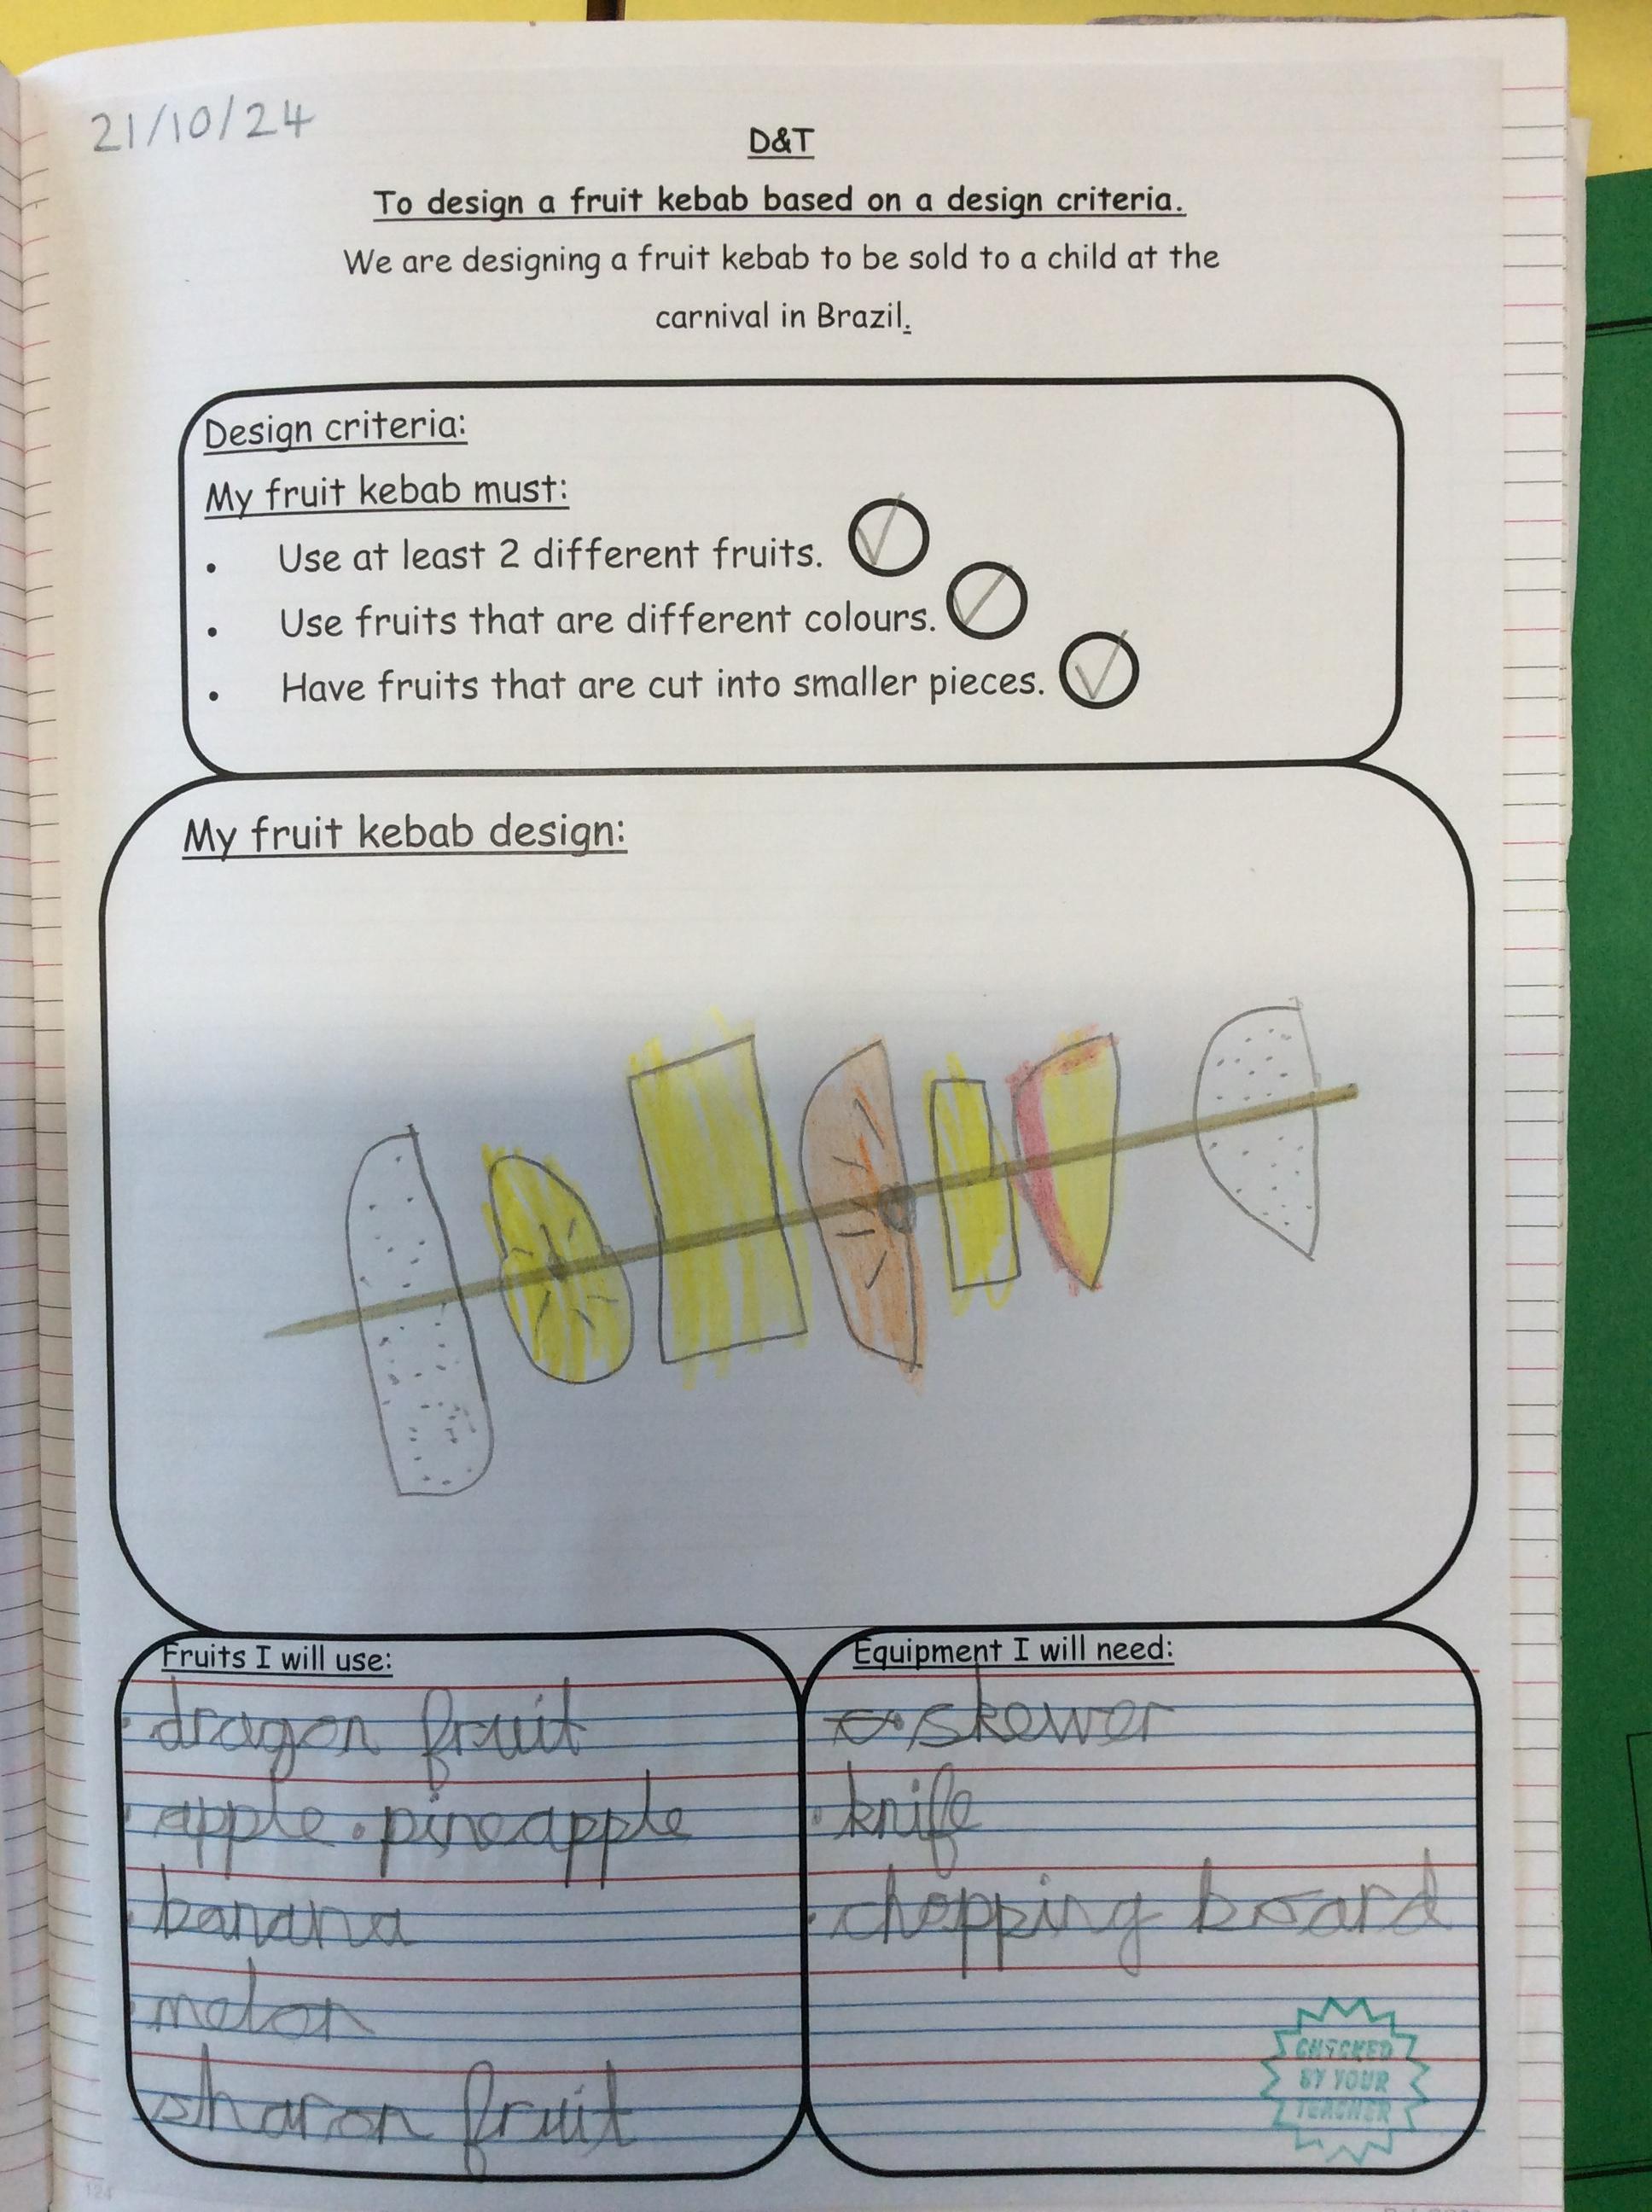 21/10/24
D&T
To design a fruit kebab based on a design criteria.
We are designing a fruit kebab to be sold to a child at the
carnival in Brazil.
Design criteria:
My fruit kebab must:
• Use at least 2 different fruits.
• Use fruits that are different colours.
• Have fruits that are cut into smaller pieces.
My fruit kebab design:
Fruits I will use:
• dragon fruit
• apple • pineapple
• banana
• melon
sharon fruit
Equipment I will need:
• skewer
• knife
• chopping board
CHECKED
BY YOUR
TEACHER